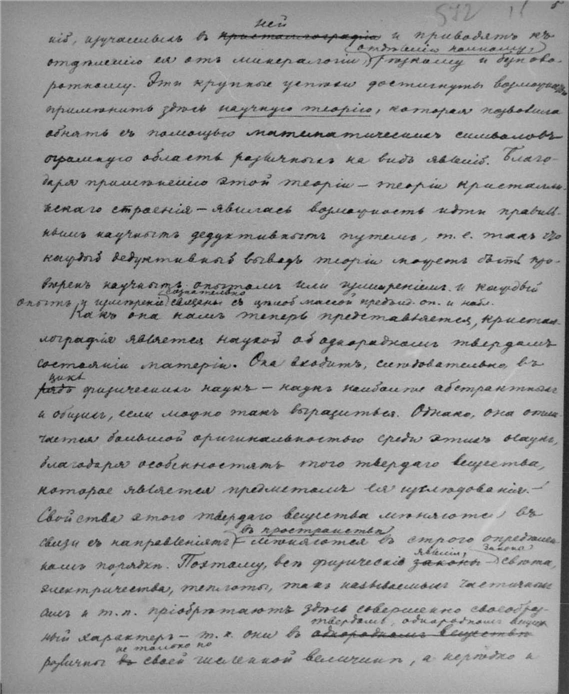 572 11
5
ней
ній, изучаемыхъ въ кристаллографіи и приводятъ къ
отдѣленію отъ минералогіи
ротному. Эти крупные успѣхи достигнуты возможностью
примѣнить здѣсь научную теорію, которая позволила
обнять съ помощью математическихъ символовъ
огромную область различныхъ на видъ явленій. Благо-
даря примѣненію этой теоріи – теоріи кристалли-
ческаго строенія – явилась возможность идти правиль-
нымъ научнымъ дедуктивнымъ путемъ, т.е. такъ что
каждый дедуктивный выводъ теоріи можетъ быть про-
вѣренъ научнымъ опытомъ или измѣреніемъ и каждый
сознательно
опытъ и измѣреніе связаны съ цѣлой массой предыд. оп. и наб.
Какъ она намъ теперь представляется, кристал-
лографія является наукой объ однородномъ твердомъ
состояніи матеріи. Она входитъ, слѣдовательно въ
циклъ
рядъ физическихъ наукъ – наукъ наиболѣе абстрактныхъ
и общихъ, если можно такъ выразиться. Однако, она отли-
чается большой оригинальностью среди этихъ наукъ,
благодаря особенностямъ того твердаго вещества,
которое является предметомъ ея изслѣдованія. –
Свойства этого твердаго вещества мѣняются въ
въ пространствѣ
связи съ направленіемъ мѣняются въ строго опредѣлен-
явленія, законы
номъ порядкѣ. Поэтому, всѣ физическіе законы – свѣта,
электричества, теплоты, такъ называемыхъ частичныхъ
силъ и т.п. пріобрѣтаютъ здѣсь совершенно своеобраз-
твердомъ, однородномъ веществѣ
ный характеръ – т.к. они въ однородномъ веществѣ
не только по
различны въ своей численной величинѣ, а нерѣдко и